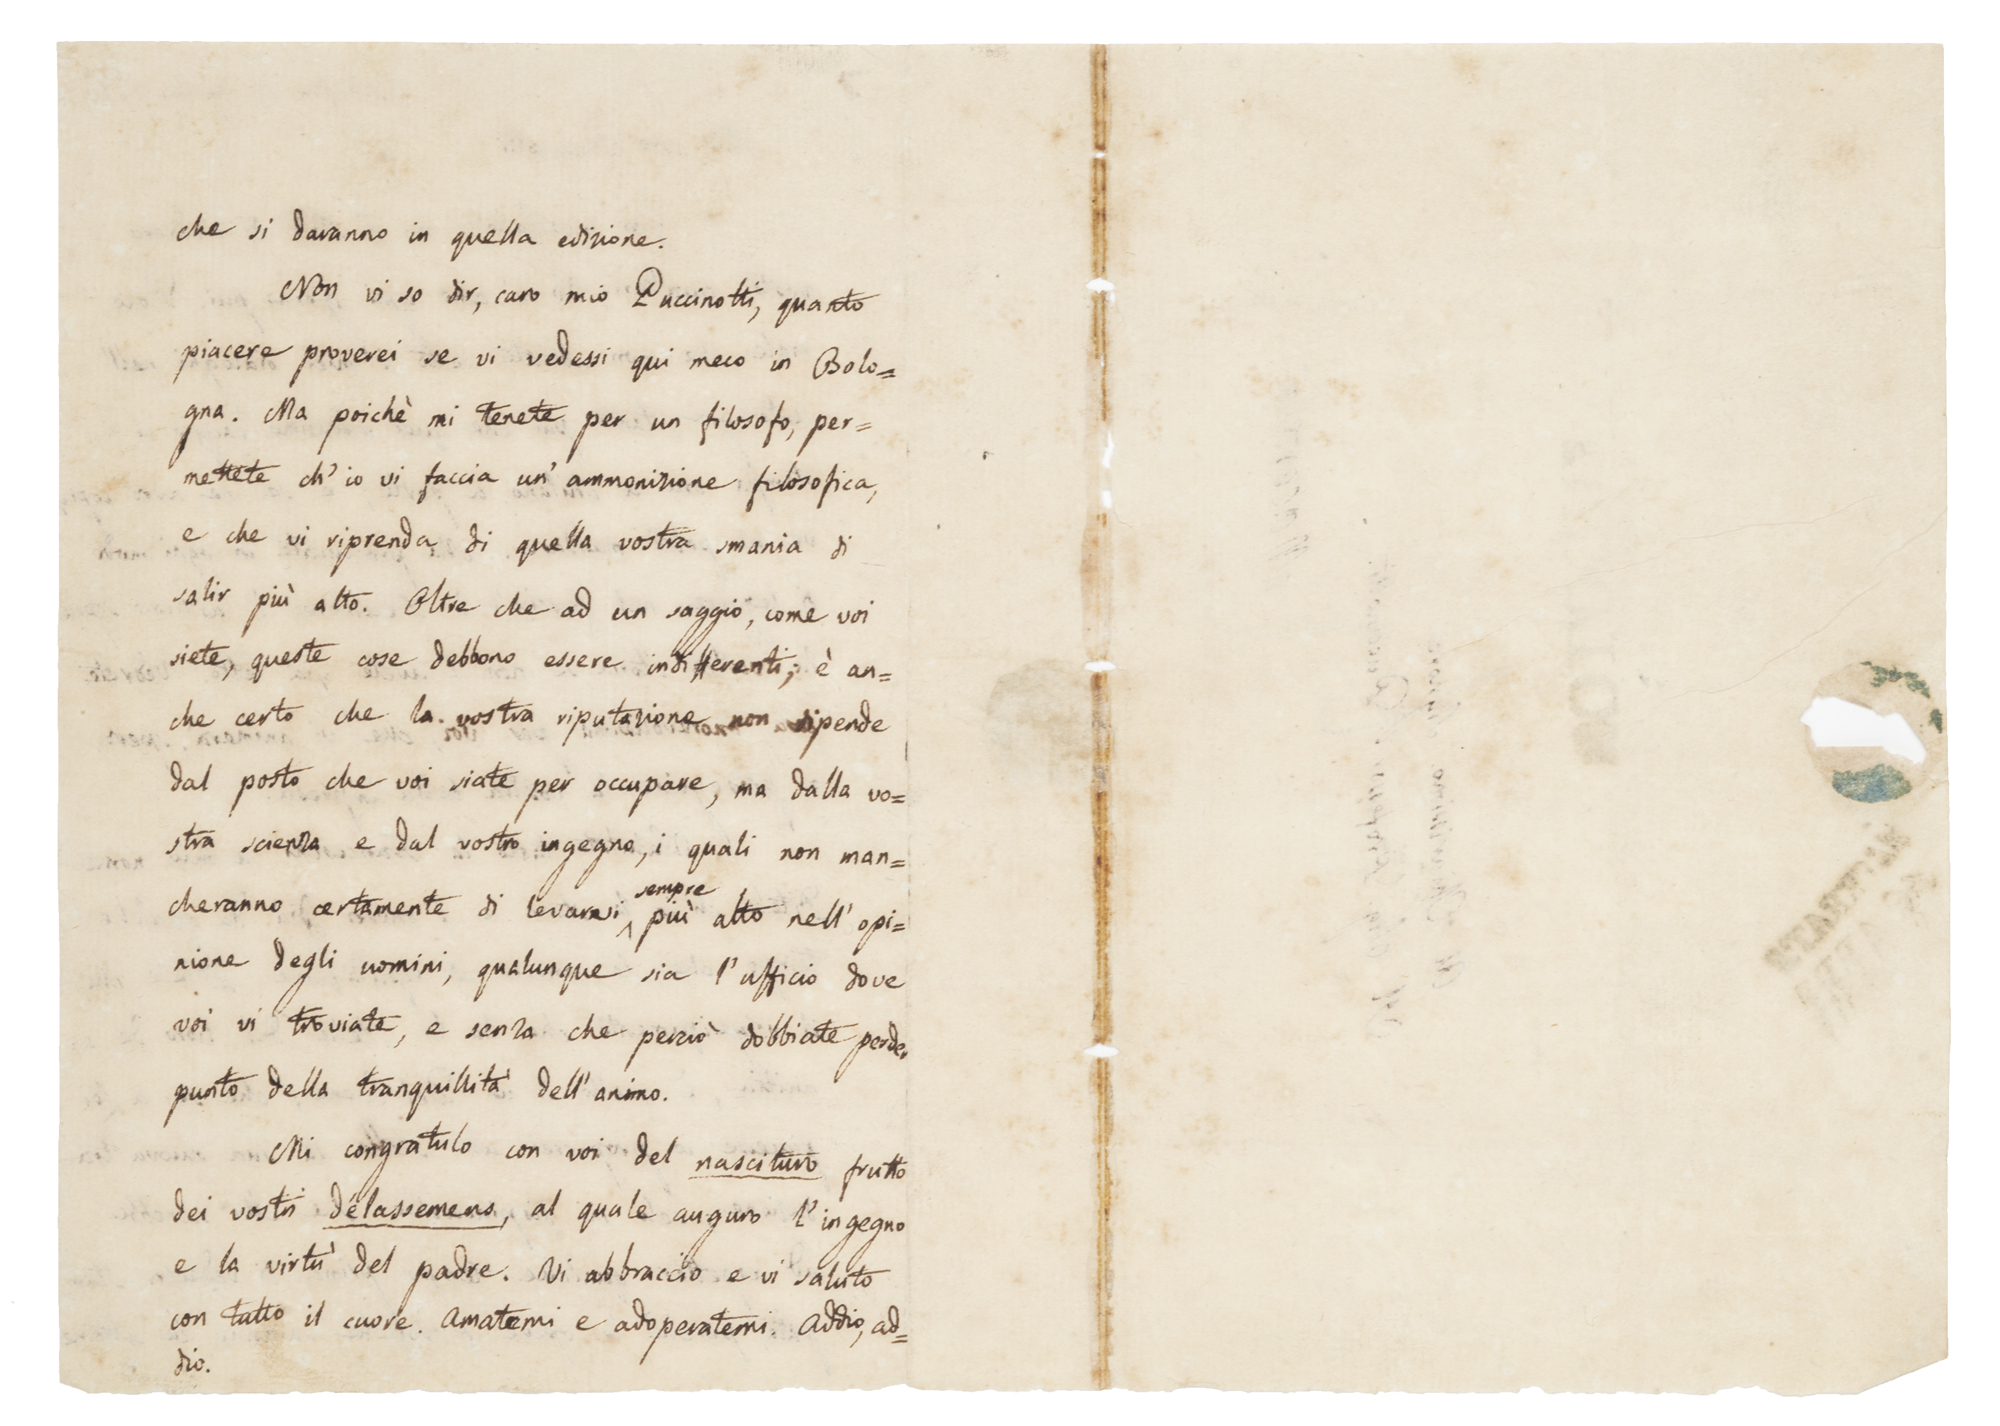 che si daranno in quella edizione.
Non vi so dir, caro mio Puccinotti, quanto
piacere proverei se vi vedessi qui meco in Bolo=
gna. Ma poichè mi tenete per un filosofo, per=
mettete ch' io vi faccia un' ammonizione filosofica,
e che vi riprenda di quella vostra smania di
salir più alto. Oltre che ad un saggio, come voi
siete, queste cose debbono essere indifferenti; è an=
che certo che la vostra riputazione non dipende
dal posto che voi siate per occupare, ma dalla vo=
stra scienza e dal vostro ingegno, i quali non man=
cheranno certamente di levarsi sempre più alto nell' opi=
nione degli uomini, qualunque sia l' ufficio dove
voi vi troviate, e senza che perciò dobbiate perder
punto della tranquillità dell' animo.
Mi congratulo con voi del nascituro frutto
dei vostri délassemens, al quale auguro l' ingegno
e la virtù del padre. Vi abbraccio e vi saluto
con tutto il cuore. Amatemi e adoperatemi. Addio, ad=
dio.